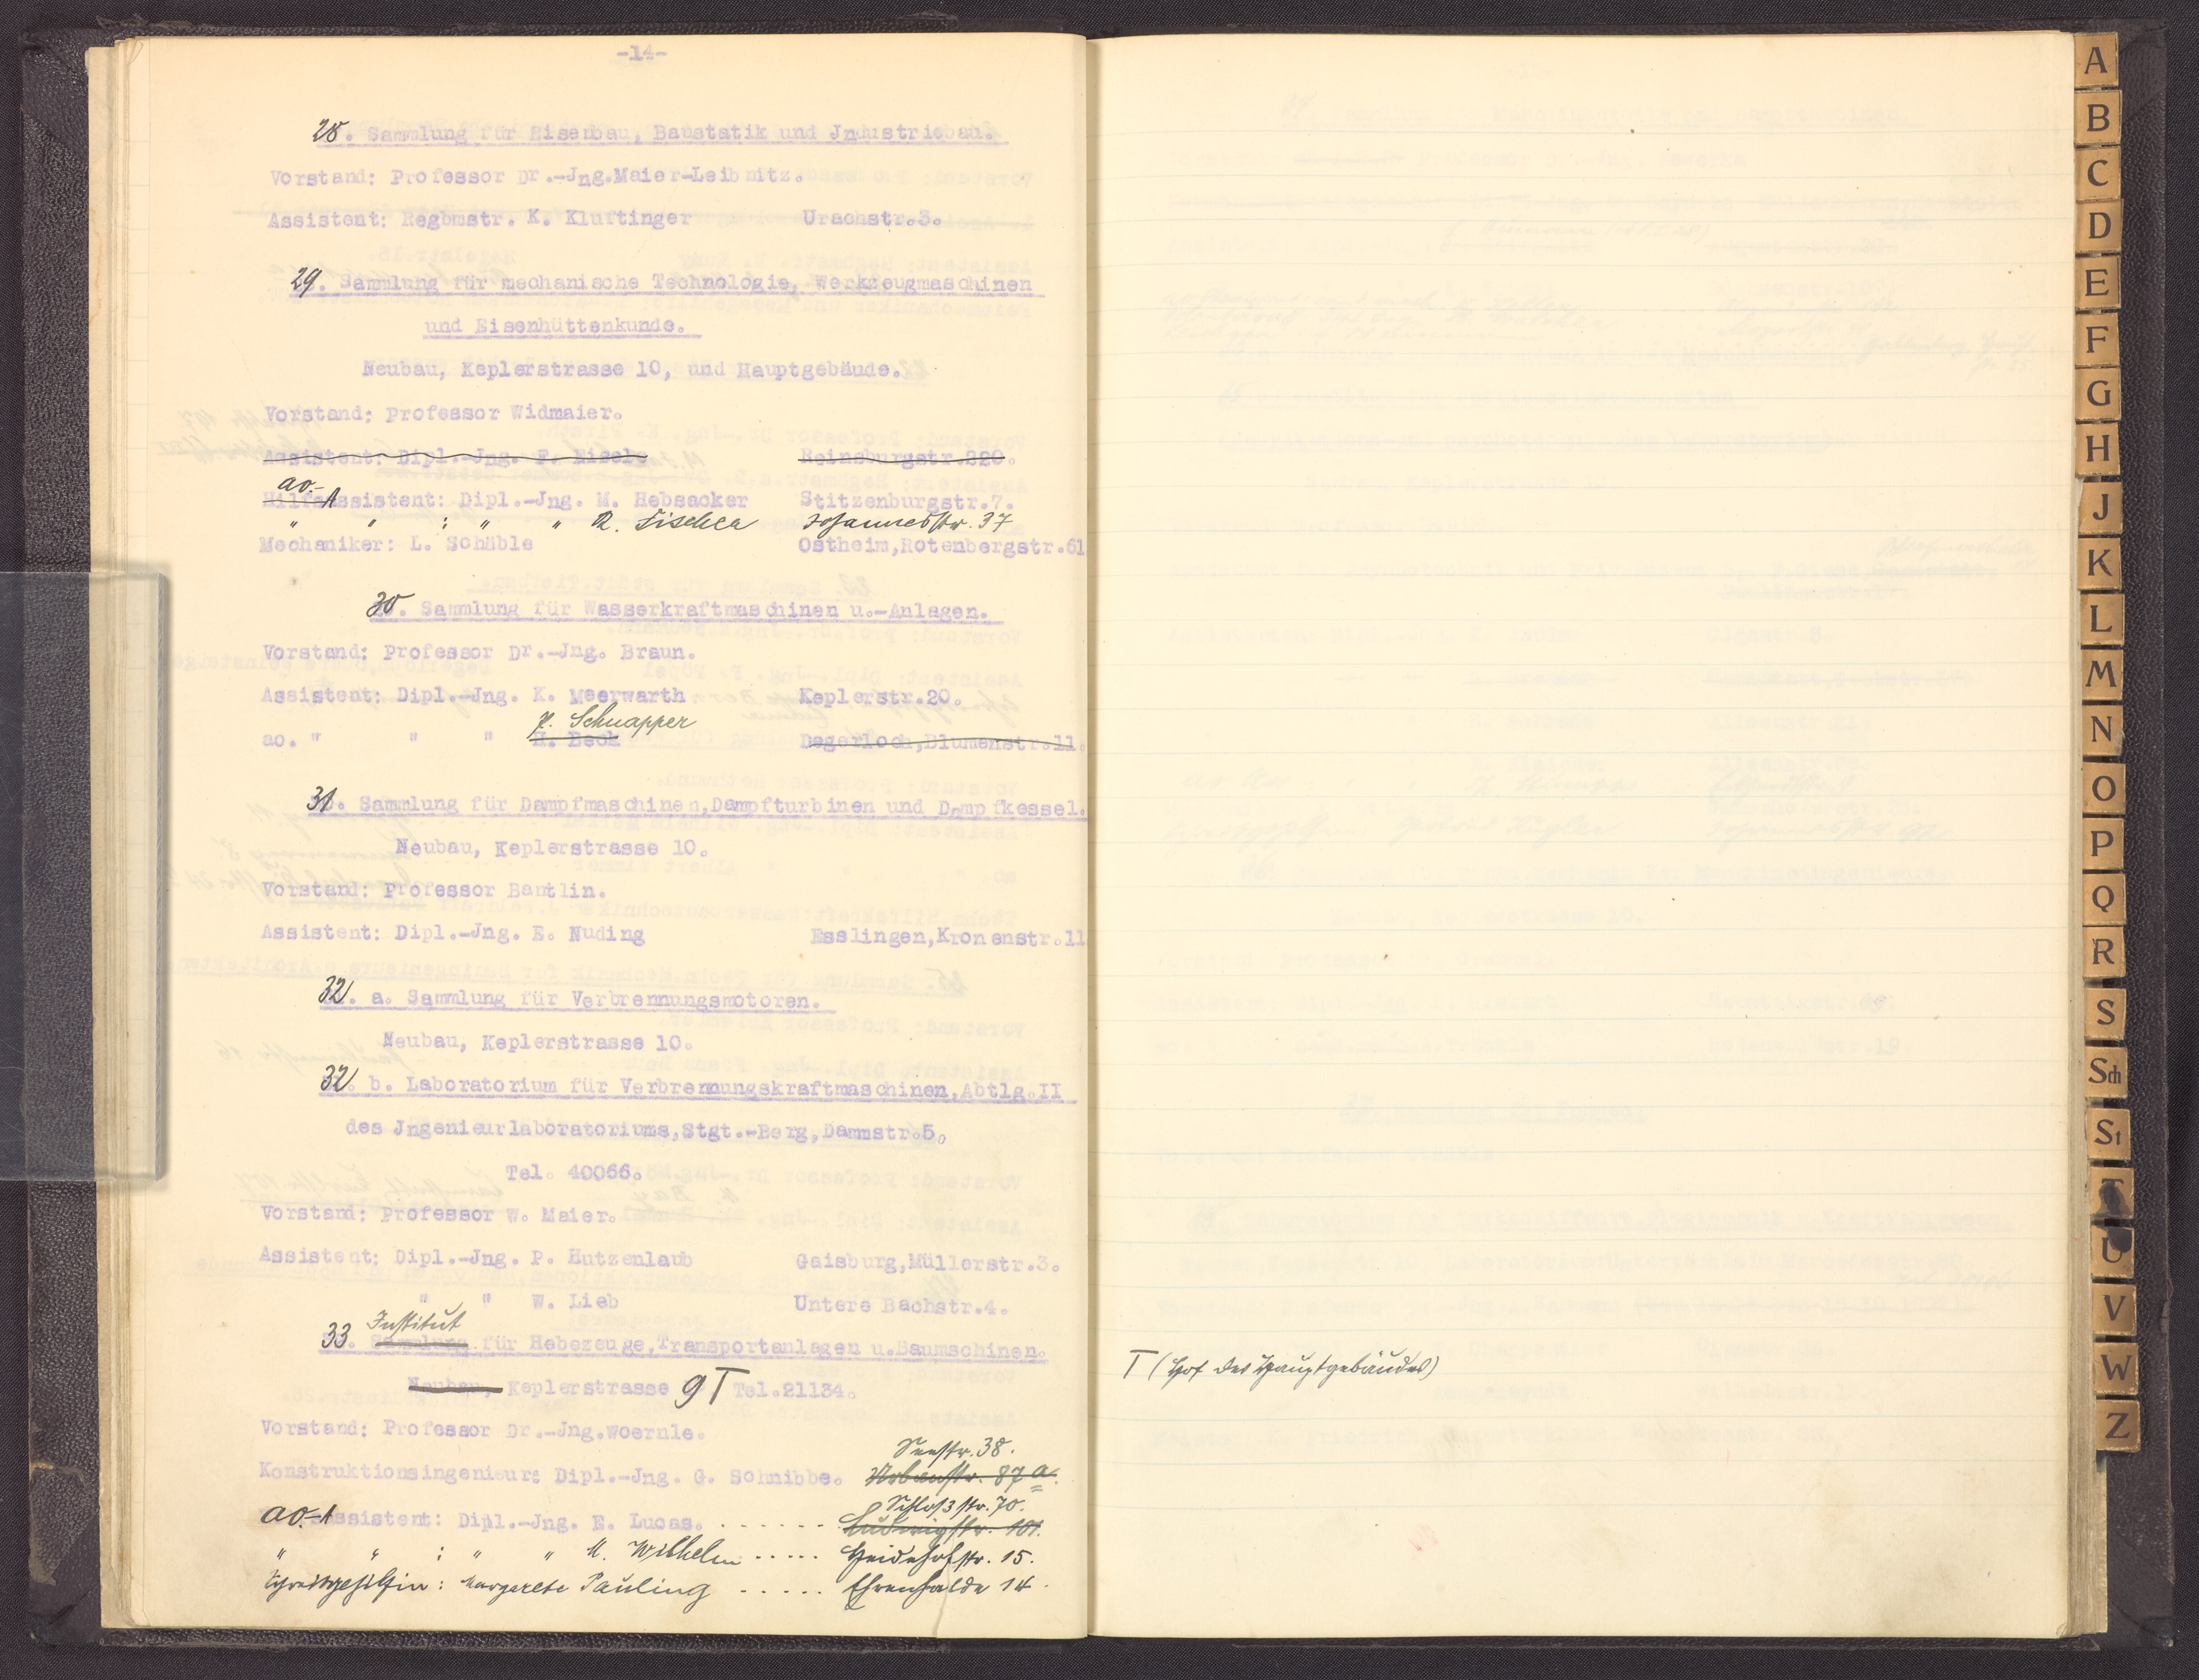 -14-
28. Sammlung für Eisenbau, Baustatik und Jndustriebau.
Vorstand: Professor Dr.-Jng.Maier-Leibnitz.
Assistent: Regbmstr. K. Kluftinger Urachstr.3.
29. Sammlung für mechanische Technologie, Werkzeugmaschinen
und Eisenhüttenkunde.
Neubau, Keplerstrasse 10, und Hauptgebäude.
Vorstand: Professor Widmaier.
Assistent: Dipl.-Jng. F. Eisele Reinsburgstr.220.
ao.-A
Hilfsassistent: Dipl.-Jng. M. Hebsacker Stitzenburgstr.7.
" " : " " R. Fischer Johannesstr. 37
Mechaniker: L. Schäble Ostheim,Rotenbergstr.61
30. Sammlung für Wasserkraftmaschinen u.-Anlagen.
Vorstand: Professor Dr.-Jng. Braun.
Assistent: Dipl.-Jng. K. Meerwarth Keplerstr.20.
Schnapper
ao. " " " H. Beck Degerloch,Blumenstr.11.
31. Sammlung für Dampfmaschinen,Dampfturbinen und Dampfkessel.
Neubau, Keplerstrasse 10.
Vorstand: Professor Bantlin.
Assistent: Dipl.-Jng. E. Nuding Esslingen,Kronenstr.11
32. a. Sammlung für Verbrennungsmotoren.
Neubau, Keplerstrasse 10.
32. b. Laboratorium für Verbrennungskraftmaschinen,Abtlg.II
des Jngenieurlaboratoriums,Stgt.-Berg,Dammstr.5.
Tel. 40066.
Vorstand: Professor W. Maier.
Assistent: Dipl.-Jng. P. Hutzenlaub Gaisburg,Müllerstr.3.
" " W. Lieb Untere Bachstr.4.
Institut
33. Sammlung für Hebezeuge,Transportanlagen u.Baumschinen.
Neubau, Keplerstrasse 9 T Tel.21134.
Vorstand: Professor Dr.-Jng.Woernle.
Seestr. 38.
Konstruktionsingenieur: Dipl.-Jng. G. Schnibbe. 87 a.
Schloßstr. 70.
ao.-Assistent: Dipl.-Jng. E. Lucas. . . . . . . Ludwigstr. 101.
" " : " " M. Wilhelm . . . . . Heidehofstr. 15.
Schreibgehilfin: Margarete Pauling . . . . . Ehrenhalde 14.
T (Hof des Hauptgebäudes)
A
B
C
D
E
F
G
H
J
K
L
M
N
O
P
Q
R
S
Sch
St
T
U
V
W
Z